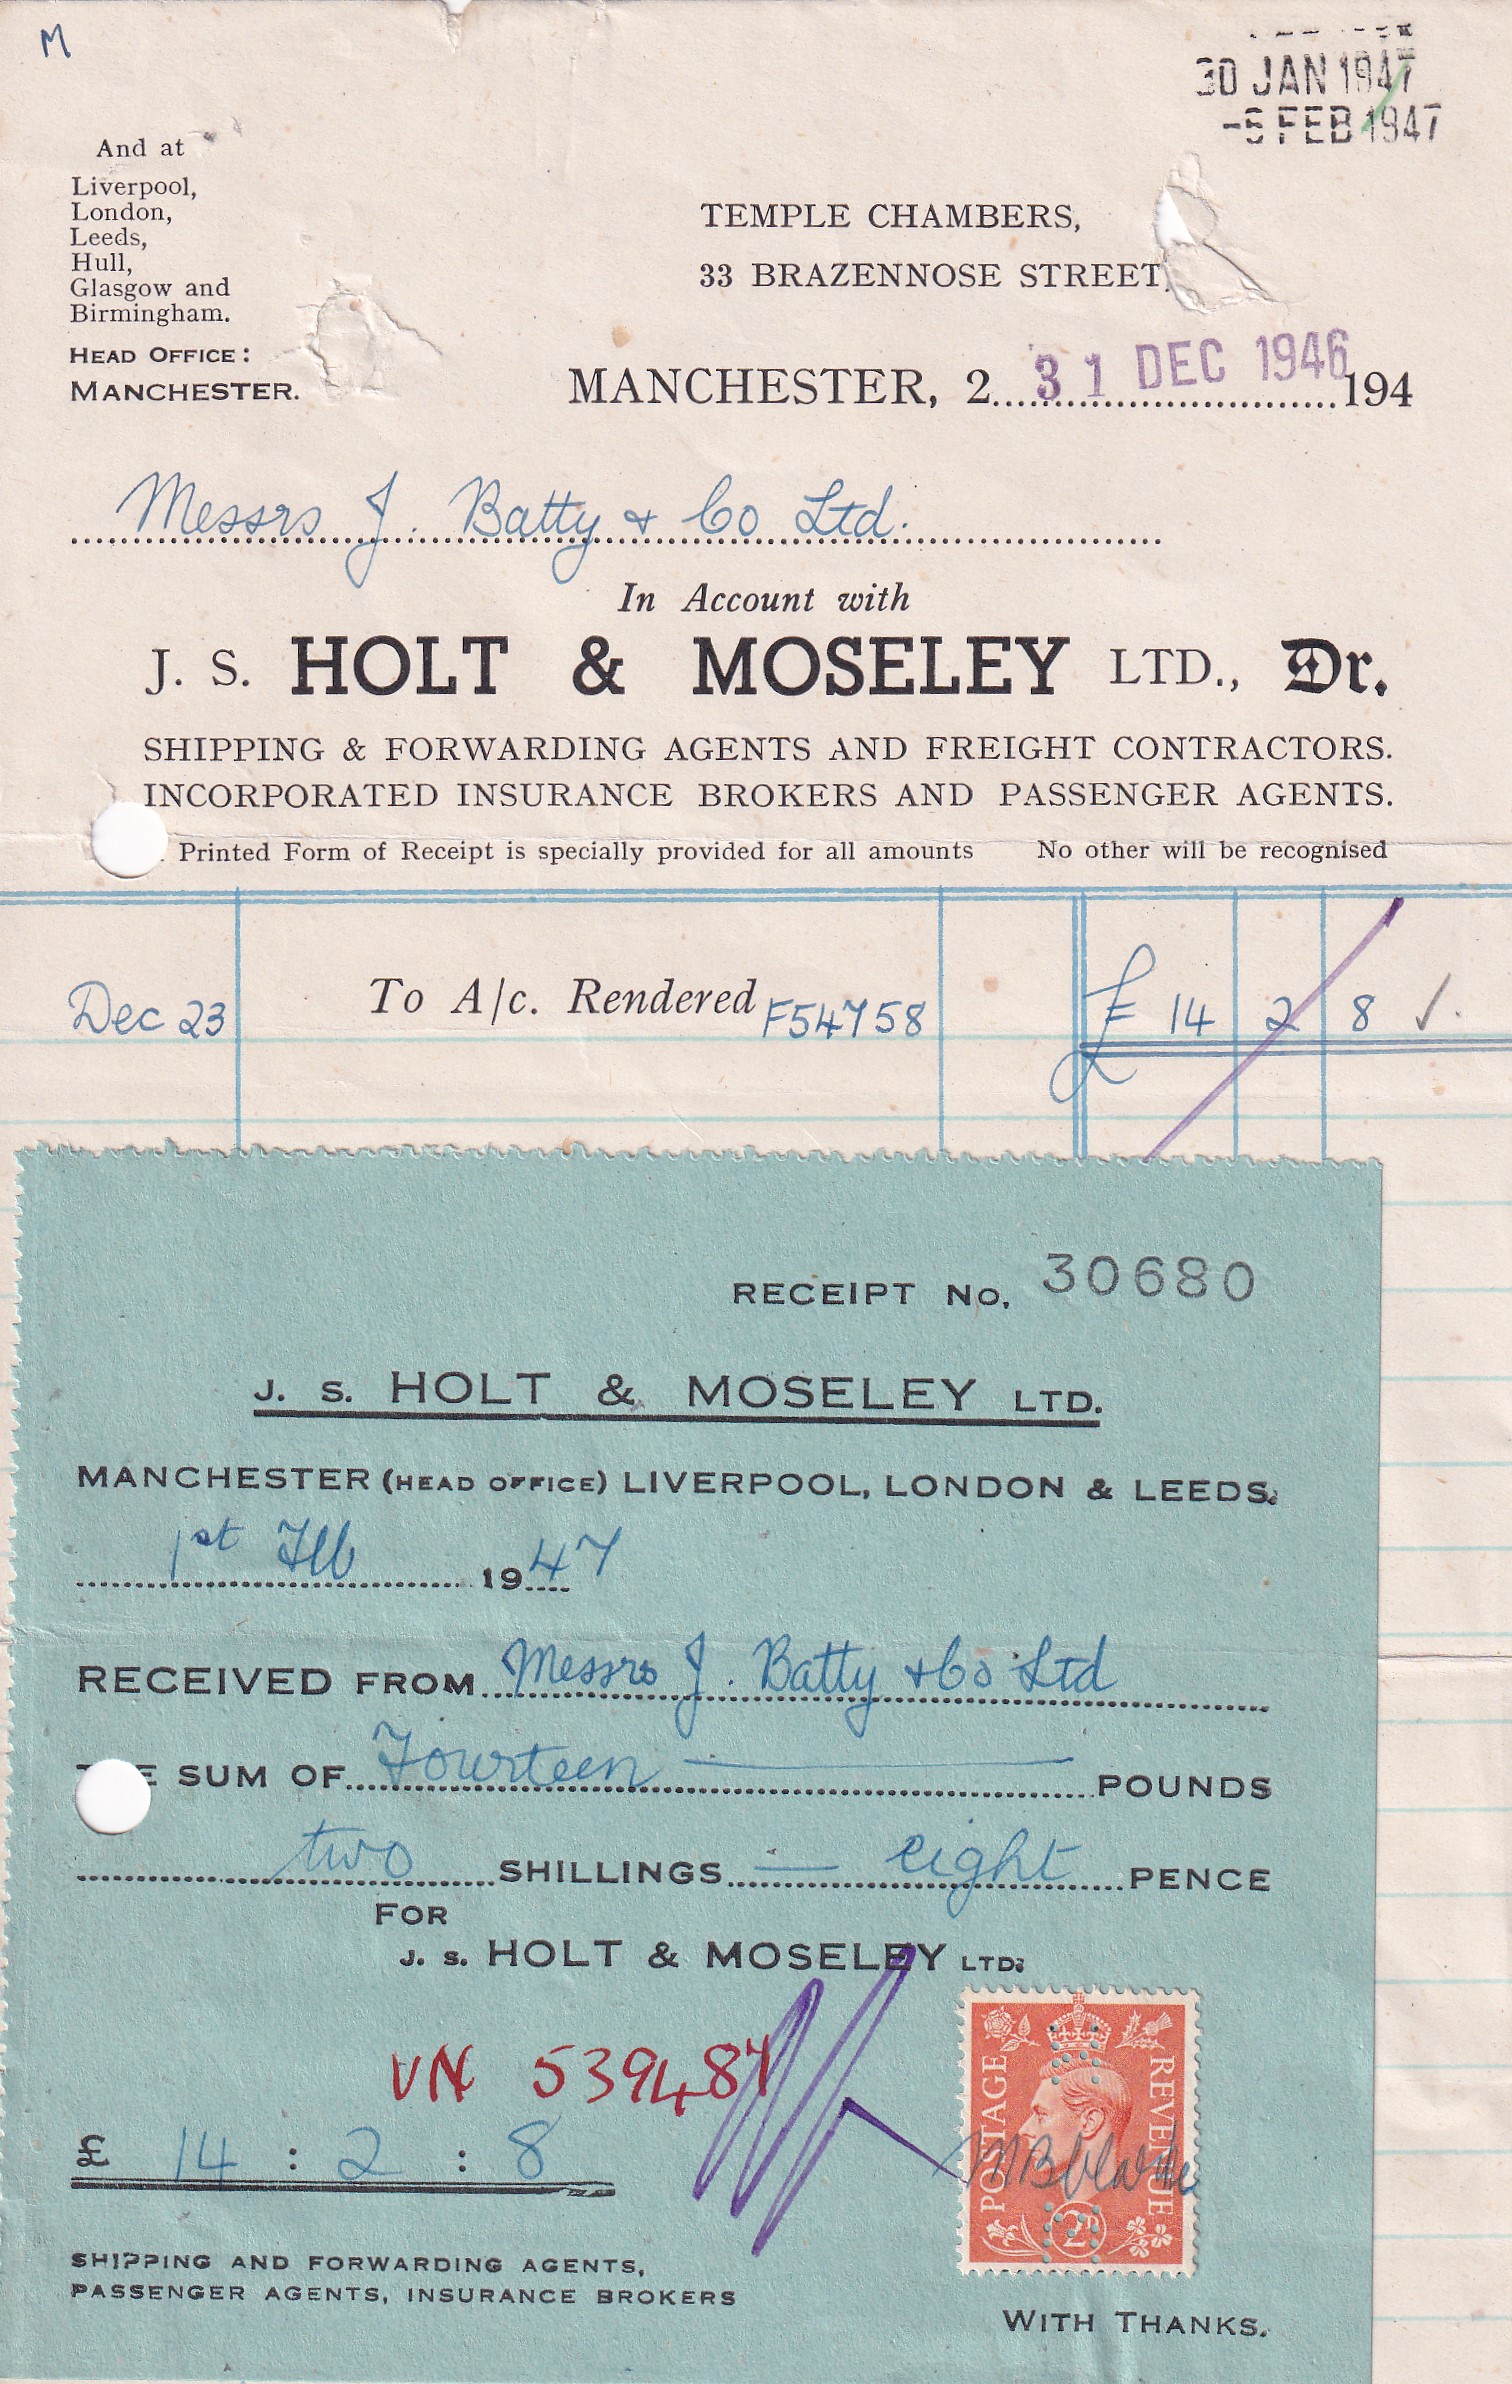 M
30 JAN 1947
-5 FEB 1947
And at
Liverpool,
London,
Leeds,
Hull,
Glasgow and
Birmingham.
HEAD OFFICE:
MANCHESTER.
TEMPLE CHAMBERS,
33 BRAZENNOSE STREET,
MANCHESTER, 2 31 DEC 1946 194
Messrs J. Batty & Co Ltd.
In Account with
J. S. HOLT & MOSELEY LTD., Dr.
SHIPPING & FORWARDING AGENTS AND FREIGHT CONTRACTORS.
INCORPORATED INSURANCE BROKERS AND PASSENGER AGENTS.
Printed Form of Receipt is specially provided for all amounts No other will be recognised
Dec 23 To A/c. Rendered F54758 £ 14 2 8 ✓.
RECEIPT No. 30680
J. S. HOLT & MOSELEY LTD.
MANCHESTER (HEAD OFFICE) LIVERPOOL, LONDON & LEEDS.
1st Feb 1947
RECEIVED FROM Messrs J. Batty & Co Ltd
SUM OF Fourteen POUNDS
two SHILLINGS — eight PENCE
FOR
J. S. HOLT & MOSELEY LTD.
VN 539487
£ 14 : 2 : 8
POSTAGE REVENUE
2D
SHIPPING AND FORWARDING AGENTS,
PASSENGER AGENTS, INSURANCE BROKERS
WITH THANKS.